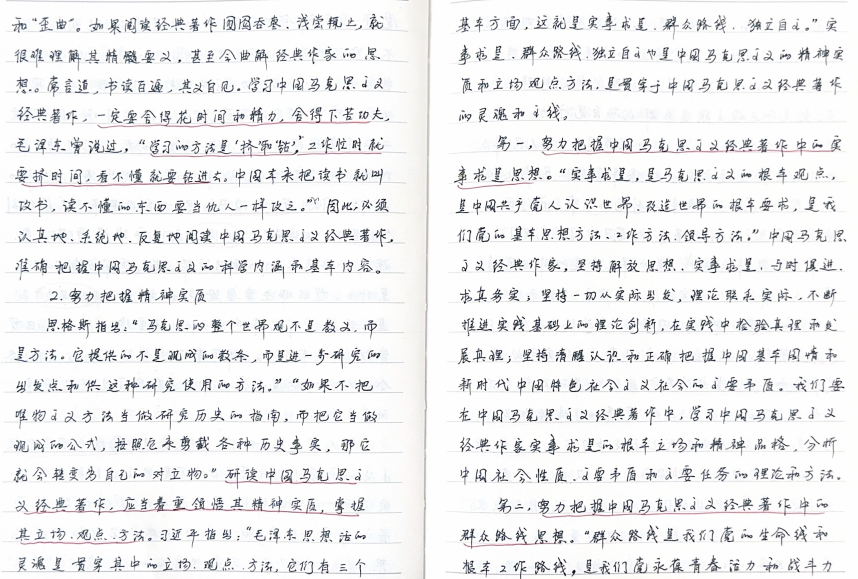 和“歪曲”。如果阅读经典著作囫囵吞枣、浅尝辄止，就
很难理解其精髓要义，甚至会曲解经典作家的思
想。常言道，书读百遍，其义自见。学习中国马克思主义
经典著作，一定要舍得花时间和精力，舍得下苦功夫，
毛泽东曾说过，“学习的方法是‘挤’和‘钻’，工作忙时就
要挤时间，看不懂就要钻进去。中国本来把读书就叫
攻书，读不懂的东西要当仇人一样攻之。”因此，必须
认真地、系统地、反复地阅读中国马克思主义经典著作，
准确把握中国马克思主义的科学内涵和基本内容。
2. 努力把握精神实质
恩格斯指出：“马克思的整个世界观不是教义，而
是方法。它提供的不是现成的教条，而是进一步研究的
出发点和供这种研究使用的方法。”“如果不把
唯物主义方法当做研究历史的指南，而把它当做
现成的公式，按照它来剪裁各种历史事实，那它
就会转变为自己的对立物。”研读中国马克思主
义经典著作，应当着重领悟其精神实质，掌握
其立场、观点、方法。习近平指出：“毛泽东思想活的
灵魂是贯穿其中的立场、观点、方法，它们有三个
基本方面，这就是实事求是、群众路线、独立自主。”实
事求是、群众路线、独立自主也是中国马克思主义的精神实
质和立场观点方法，是贯穿于中国马克思主义经典著作
的灵魂和主线。
第一，努力把握中国马克思主义经典著作中的实
事求是思想。“实事求是，是马克思主义的根本观点，
是中国共产党人认识世界、改造世界的根本要求，是我
们党的基本思想方法、工作方法、领导方法。”中国马克思
主义经典作家，坚持解放思想、实事求是、与时俱进、
求真务实；坚持一切从实际出发，理论联系实际，不断
推进实践基础上的理论创新，在实践中检验真理和发
展真理；坚持清醒认识和正确把握中国基本国情和
新时代中国特色社会主义社会的主要矛盾。我们要
在中国马克思主义经典著作中，学习中国马克思主义
经典作家实事求是的根本立场和精神品格，分析
中国社会性质、主要矛盾和主要任务的理论和方法。
第二，努力把握中国马克思主义经典著作中的
群众路线思想。“群众路线是我们党的生命线和
根本工作路线，是我们党永葆青春活力和战斗力